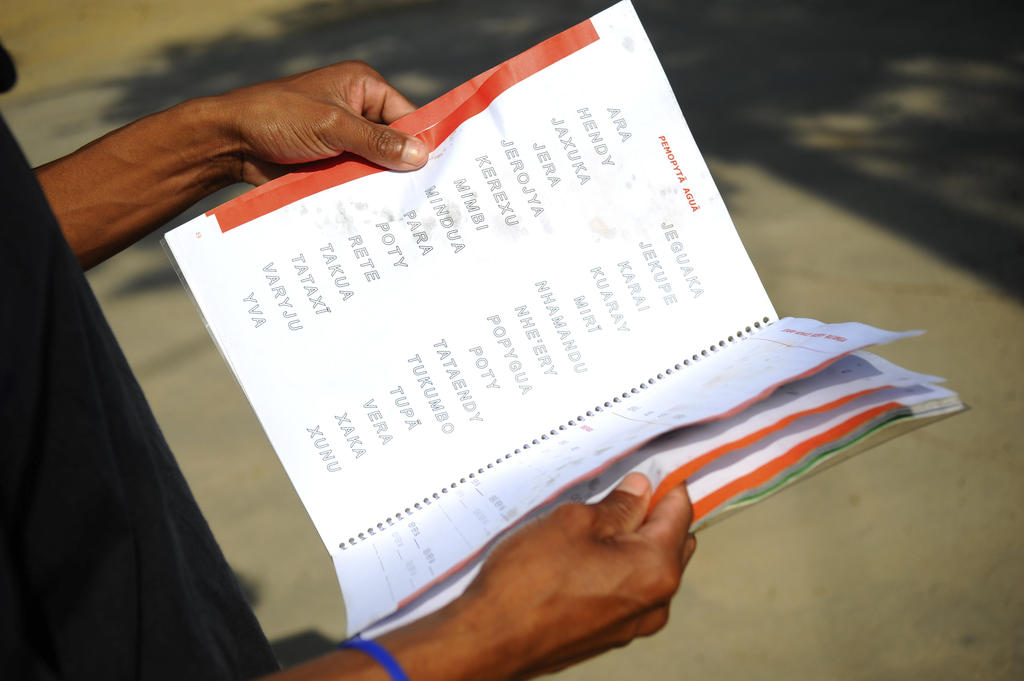 PEMOPYTÃ AGUÃ
ARA
HENDY
JAXUKA
JERA
JEROJYA
KEREXU
MIMBI
MINDUA
PARA
POTY
RETE
TAKUA
TATAXĨ
VARYJU
YVA
JEGUAKA
JEKUPE
KARAI
KUARAY
MIRĨ
NHAMANDU
NHE'ERY
POPYGUA
POTY
TATAENDY
TUKUMBO
TUPÃ
VERA
XAKA
XUNU